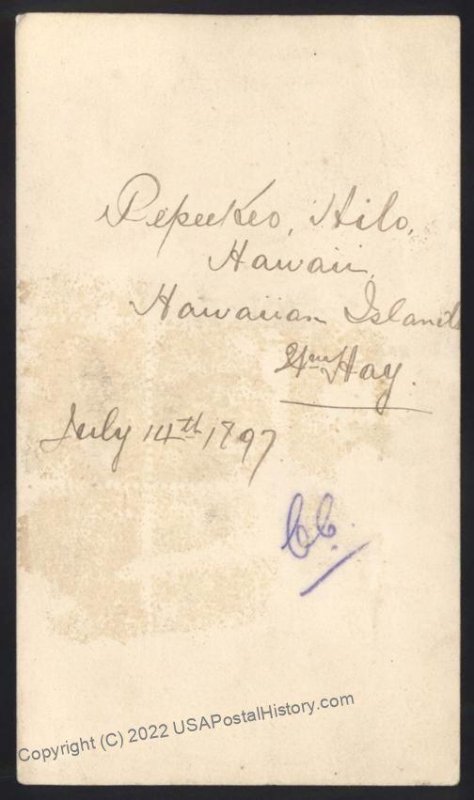 Pepeekeo, Hilo,
Hawaii,
Hawaiian Islands
Wm Hay.
July 14th, 1897
Copyright (C) 2022 USAPostalHistory.com